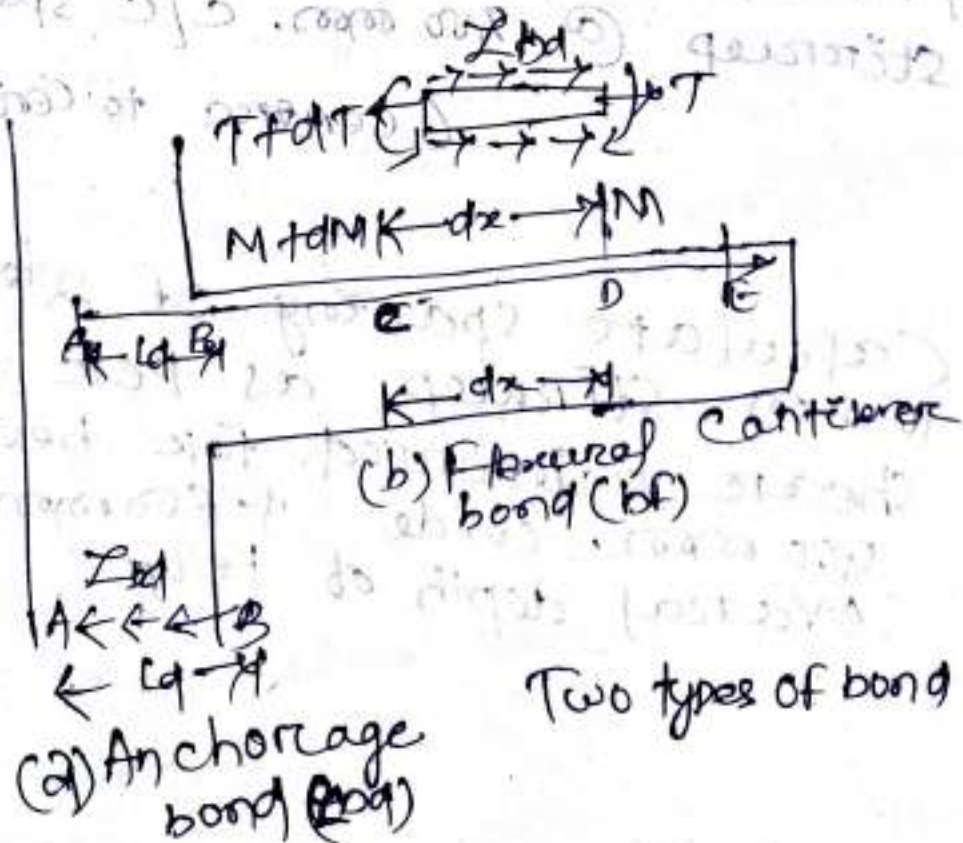 τbd
T+dT T
M+dM dx M
A Ld B C D E
dx
Cantilever
(b) Flexural
bond (bf)
τbd
A B
Ld
Two types of bond
(a) Anchorage
bond (τbd)